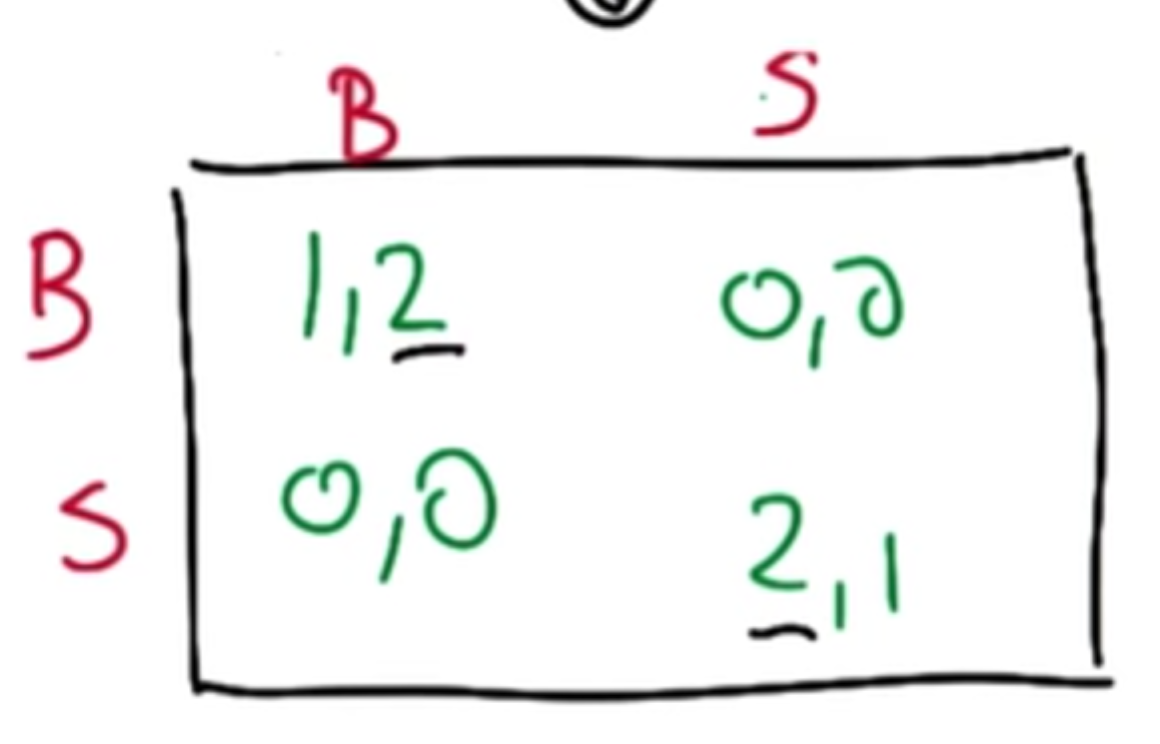 B S
B 1,2 0,0
S 0,0 2,1